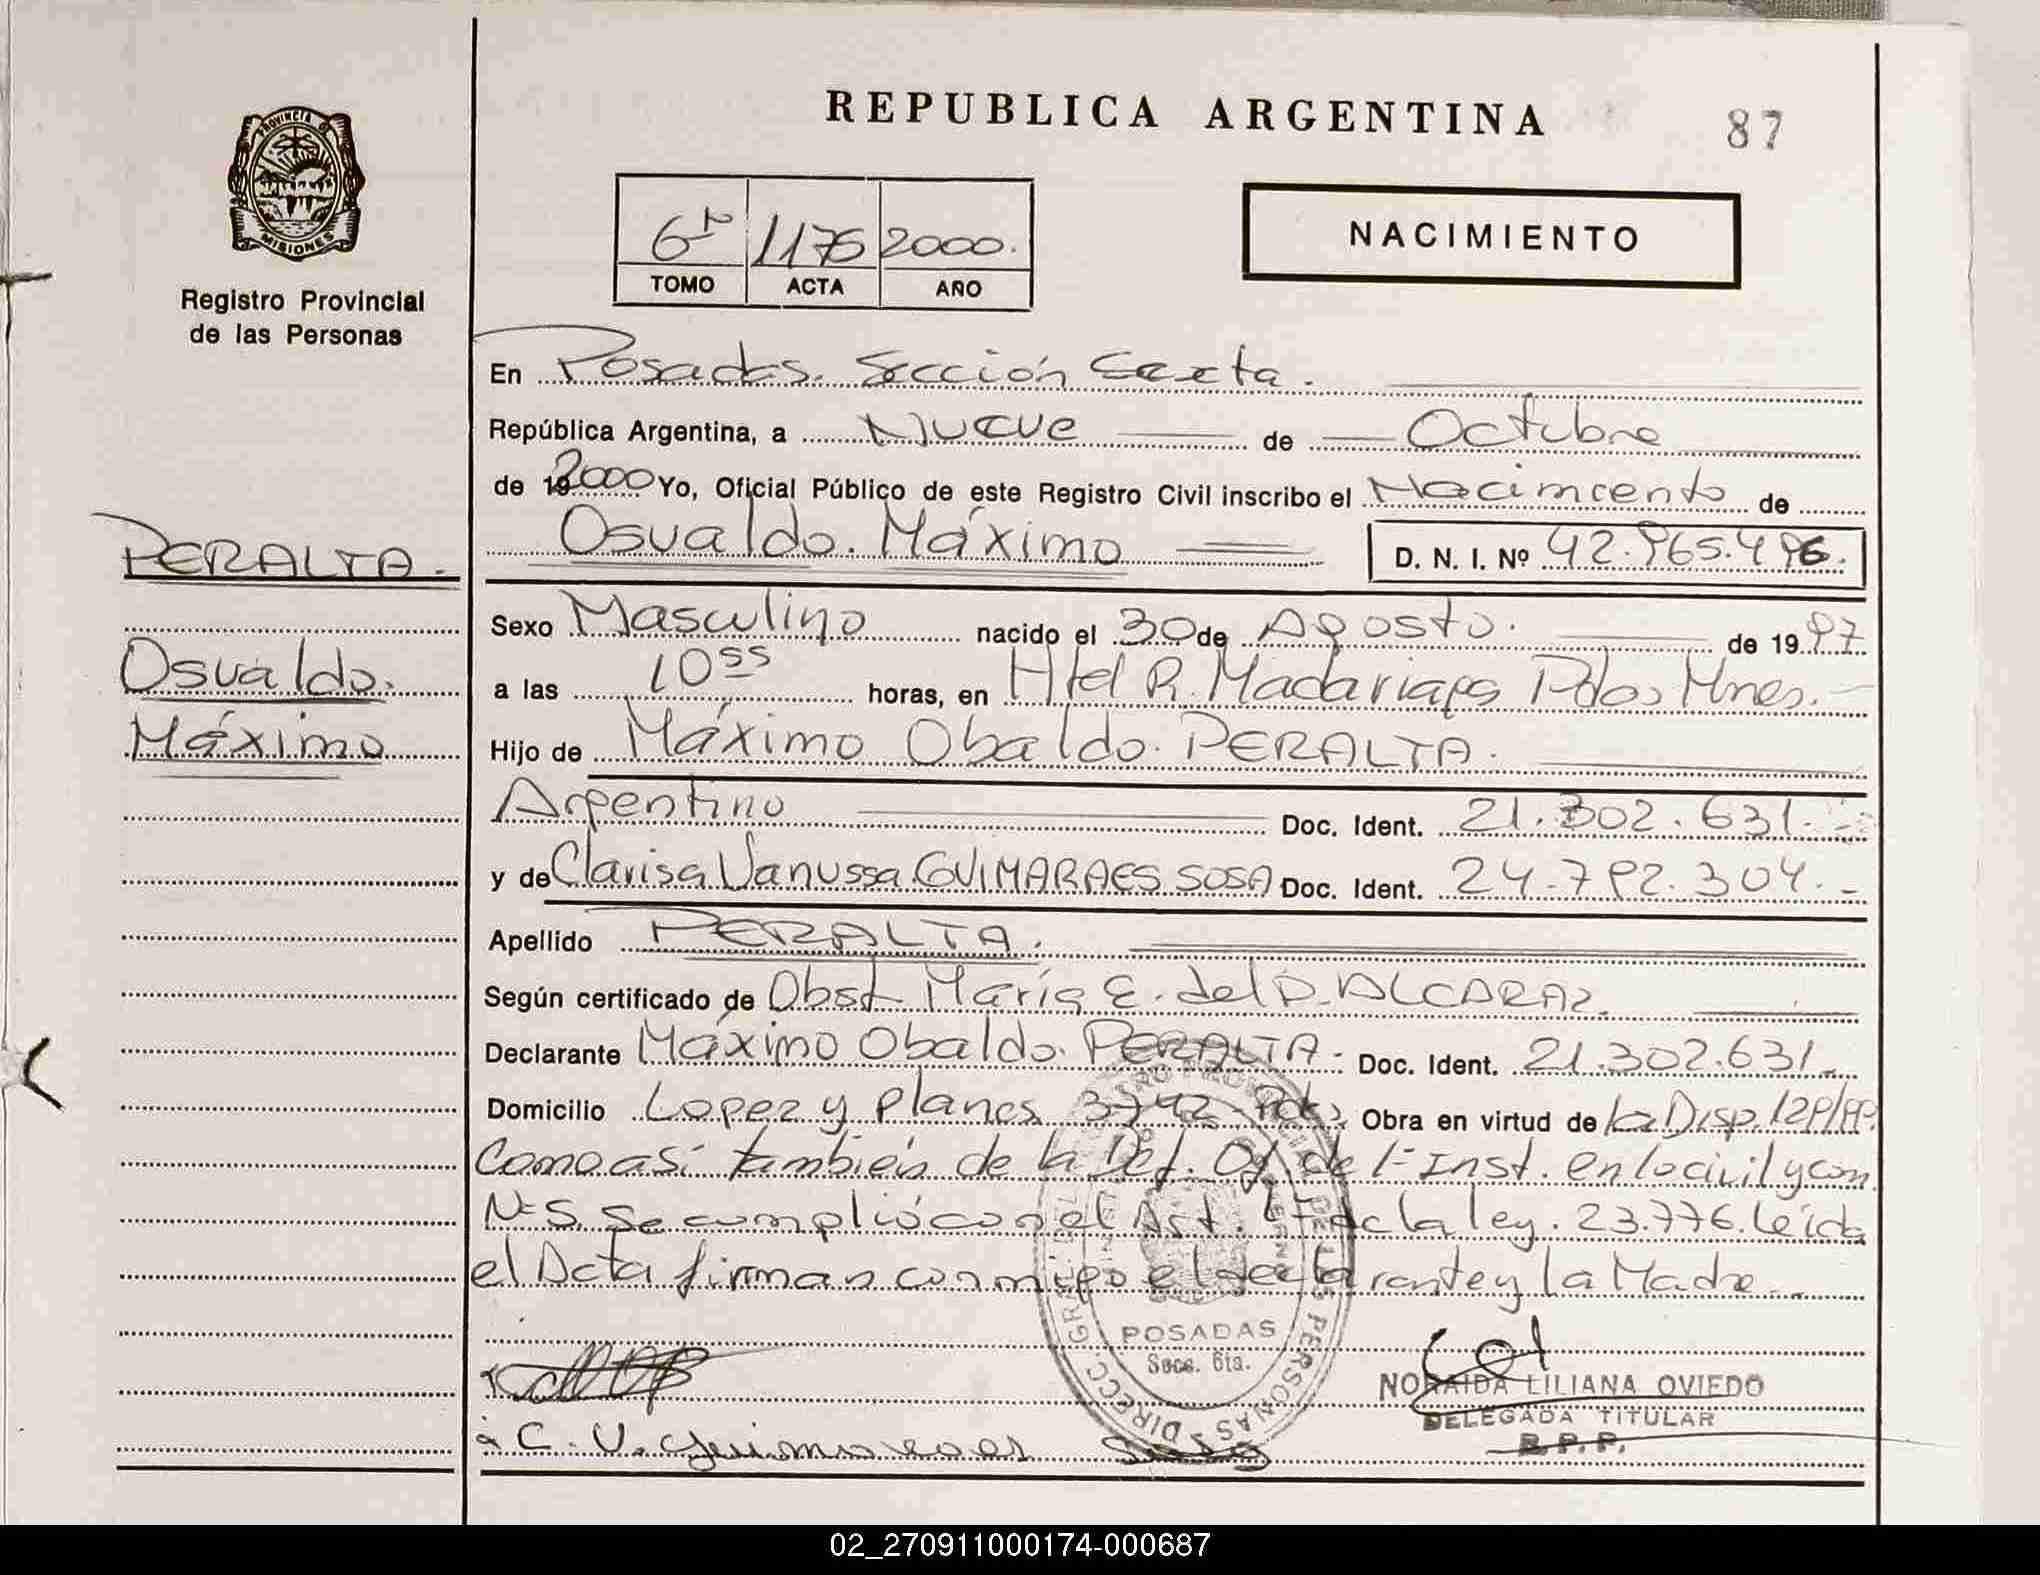 REPUBLICA ARGENTINA
87
PROVINCIA D
MISIONES
Registro Provincial
de las Personas
6ta 1175 2000.
TOMO ACTA AÑO
NACIMIENTO
En Posadas. Sección Sexta.
República Argentina, a Nueve de Octubre
de 2000 Yo, Oficial Público de este Registro Civil inscribo el Nacimiento de
Osvaldo. Máximo D. N. I. Nº 42.965.496.
PERALTA.
Osvaldo.
Máximo
Sexo Masculino nacido el 30 de Agosto. de 1997
a las 10 55 horas, en Htel R. Madariaga Pdas Mnes.
Hijo de Máximo Obaldo. PERALTA.
Argentino Doc. Ident. 21.302.631.
y de Clarisa Vanussa GUIMARAES SOSA Doc. Ident. 24.792.304.
Apellido PERALTA.
Según certificado de Obst María E. del P. ALCARAZ.
Declarante Máximo Obaldo. PERALTA. Doc. Ident. 21.302.631.
Domicilio Lopez y Planes 3742 Pdas, Obra en virtud de la Disp. 129/99.
Como así también de la Def. Of. de 1- Inst. en lo civil y com
N-5. Se cumplió con el Art. de la ley. 23.776. Leída
el Acta firman conmigo el declarante y la Madre
POSADAS
Secc. 6ta.
C. V. Guimaraes Sosa
NORAIDA LILIANA OVIEDO
DELEGADA TITULAR
R. P. P.
02_270911000174-000687